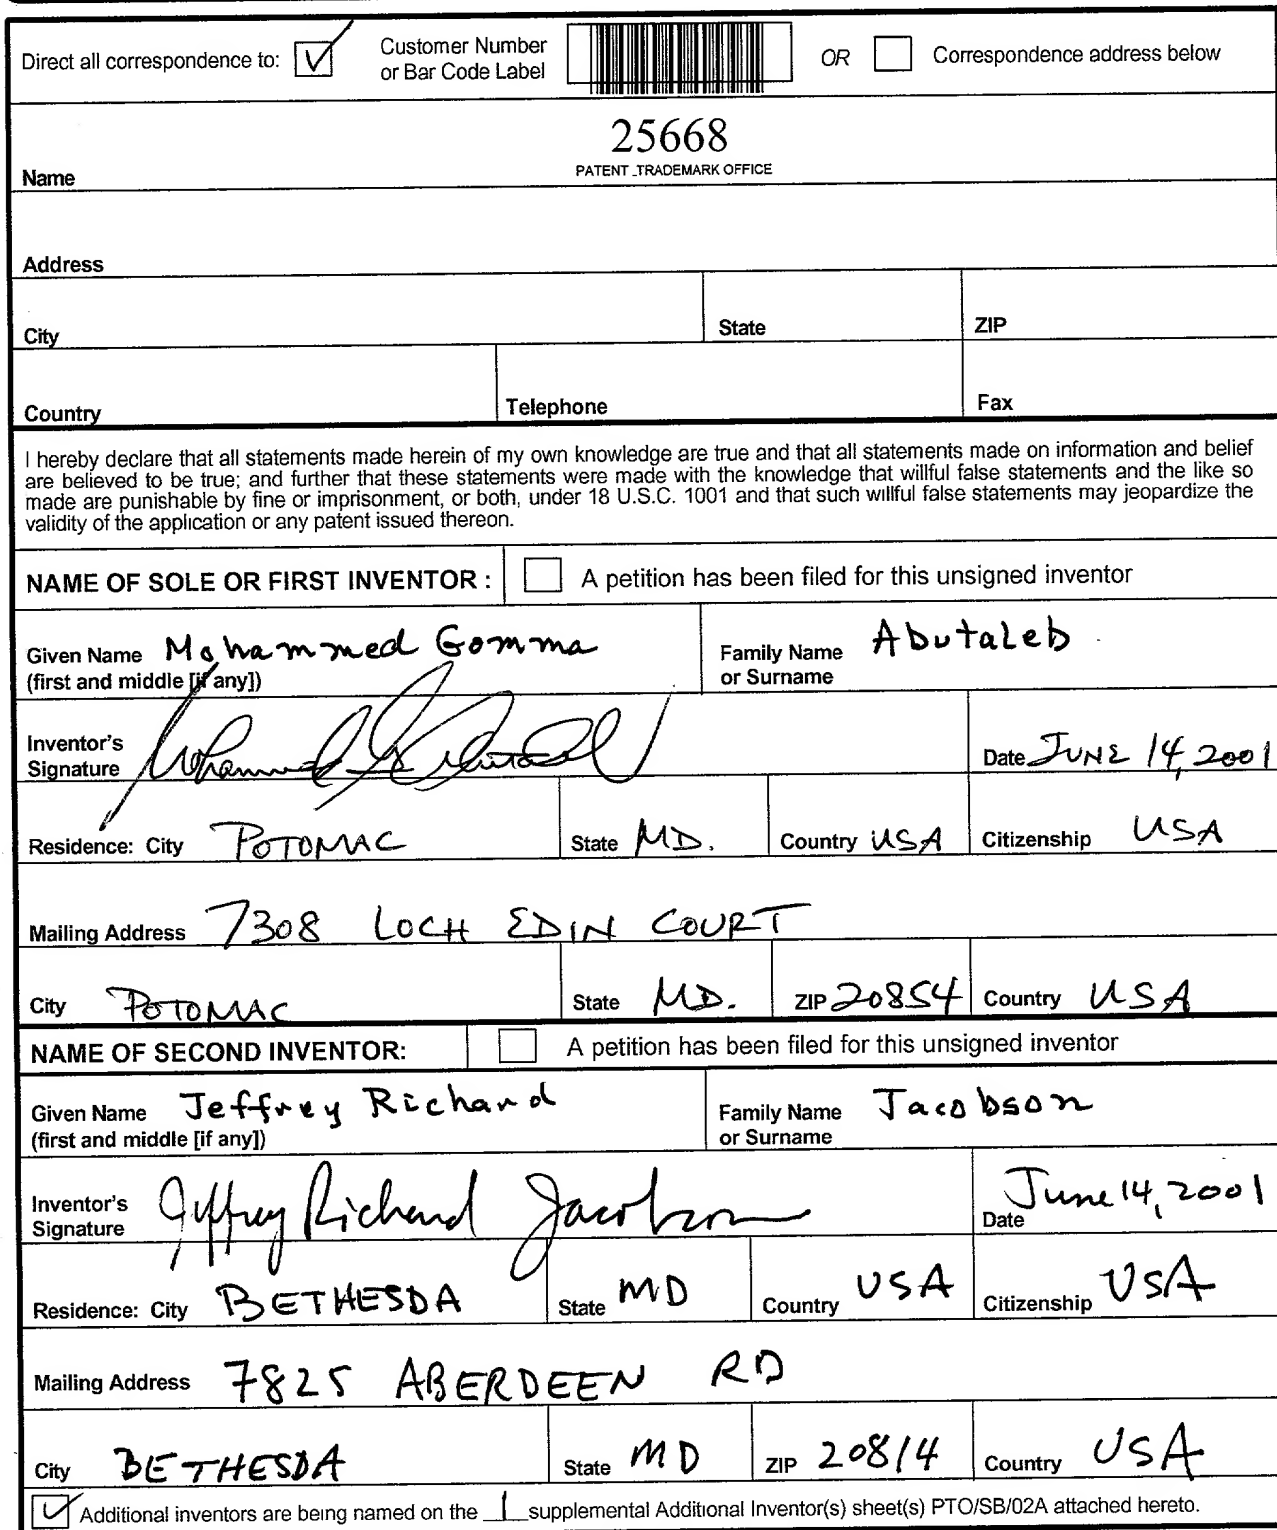 Direct all correspondence to: Customer Number or Bar Code Label OR Correspondence address below
25668
PATENT_TRADEMARK OFFICE
Name
Address
City State ZIP
Country Telephone Fax
I hereby declare that all statements made herein of my own knowledge are true and that all statements made on information and belief
are believed to be true; and further that these statements were made with the knowledge that willful false statements and the like so
made are punishable by fine or imprisonment, or both, under 18 U.S.C. 1001 and that such willful false statements may jeopardize the
validity of the application or any patent issued thereon.
NAME OF SOLE OR FIRST INVENTOR : A petition has been filed for this unsigned inventor
Given Name Mohammed Gomma Family Name Abutaleb
(first and middle [if any]) or Surname
Inventor's
Signature Mohammed G Abutaleb Date JUNE 14, 2001
Residence: City POTOMAC State MD. Country USA Citizenship USA
Mailing Address 7308 LOCH EDIN COURT
City POTOMAC State MD. ZIP 20854 Country USA
NAME OF SECOND INVENTOR: A petition has been filed for this unsigned inventor
Given Name Jeffrey Richard Family Name Jacobson
(first and middle [if any]) or Surname
Inventor's
Signature Jeffrey Richard Jacobson Date June 14, 2001
Residence: City BETHESDA State MD Country USA Citizenship USA
Mailing Address 7825 ABERDEEN RD
City BETHESDA State MD ZIP 20814 Country USA
Additional inventors are being named on the 1 supplemental Additional Inventor(s) sheet(s) PTO/SB/02A attached hereto.